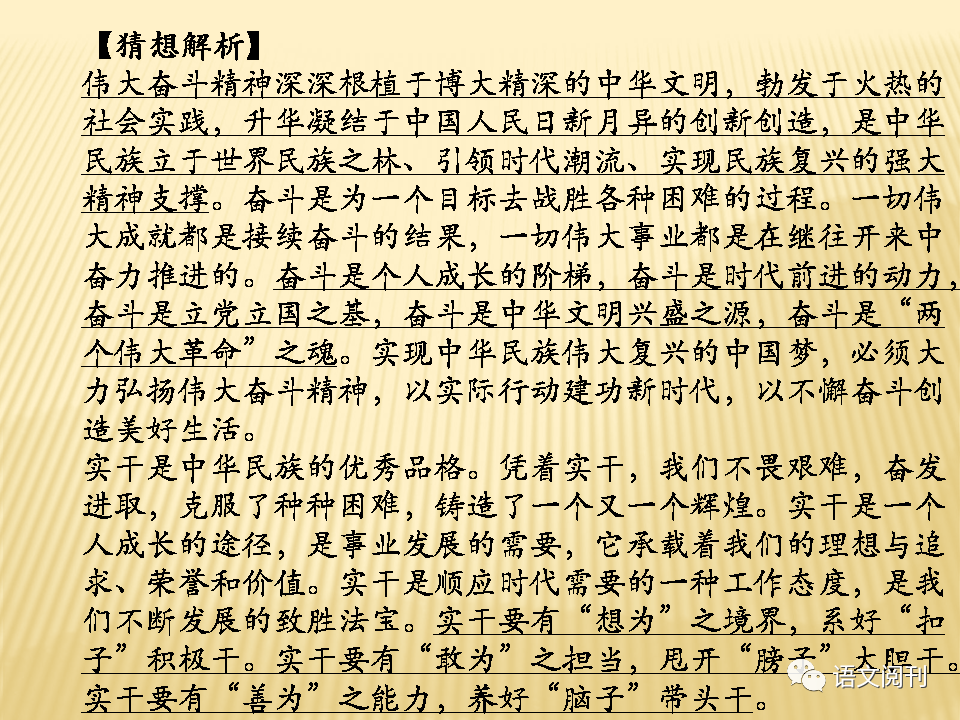 【猜想解析】
伟大奋斗精神深深根植于博大精深的中华文明，勃发于火热的
社会实践，升华凝结于中国人民日新月异的创新创造，是中华
民族立于世界民族之林、引领时代潮流、实现民族复兴的强大
精神支撑。奋斗是为一个目标去战胜各种困难的过程。一切伟
大成就都是接续奋斗的结果，一切伟大事业都是在继往开来中
奋力推进的。奋斗是个人成长的阶梯，奋斗是时代前进的动力，
奋斗是立党立国之基，奋斗是中华文明兴盛之源，奋斗是“两
个伟大革命”之魂。实现中华民族伟大复兴的中国梦，必须大
力弘扬伟大奋斗精神，以实际行动建功新时代，以不懈奋斗创
造美好生活。
实干是中华民族的优秀品格。凭着实干，我们不畏艰难，奋发
进取，克服了种种困难，铸造了一个又一个辉煌。实干是一个
人成长的途径，是事业发展的需要，它承载着我们的理想与追
求、荣誉和价值。实干是顺应时代需要的一种工作态度，是我
们不断发展的致胜法宝。实干要有“想为”之境界，系好“扣
子”积极干。实干要有“敢为”之担当，甩开“膀子”大胆干。
实干要有“善为”之能力，养好“脑子”带头干。
语文阅刊